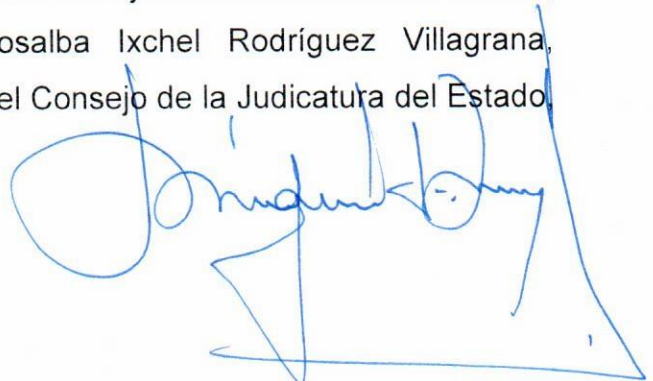 osalba Ixchel Rodríguez Villagrana,
el Consejo de la Judicatura del Estado,